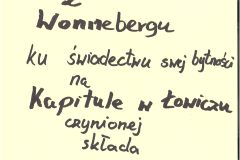 z
Wonnebergu
ku świadectwu swej bytności
na
Kapitule w Łowiczu
czynionej
składa